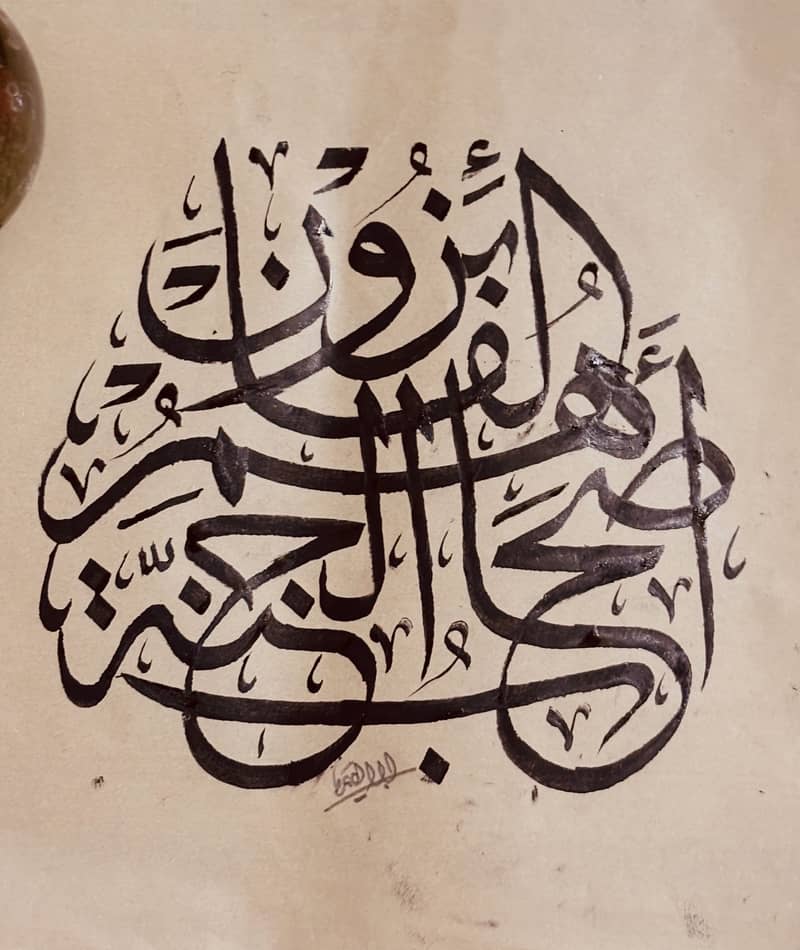 أَصْحَابُ الْجَنَّةِ
هُمُ الْفَائِزُونَ